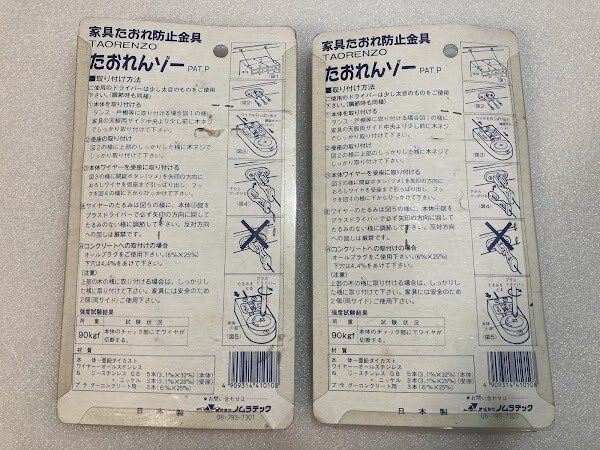 家具たおれ防止金具
TAORENZO
たおれんゾー PAT.P
■取り付け方法
ご使用のドライバーは少し太目のものをご使用
下さい。(調節時も同種)
①本体を取り付ける
タンス・戸棚等に取り付ける場合図1の様に
家具の天板両サイド中央より少し前に木ネジ
でしっかり取り付けて下さい。
②受座の取り付け
図2の様に上部のしっかりした桟に木ネジで
しっかり取り付けて下さい。
③本体ワイヤーを受座に取り付ける
図3の様に開錠ボタン(ツメ)を矢印の方向に
おろしワイヤを受座まで引っぱり出し、フッ
クを図4の様に下からひっかけて下さい。
ワイヤーのたるみは図5の様に、本体
プラスドライバーで必ず矢印の方向に回して
たるみのない様に調節して下さい。反対方向
への回しは厳禁です。
コンクリートへの取付けの場合
オールプラグをご使用下さい。(6%×25%)
下穴は4.4%をあけて下さい。
(注意)
上部の木の桟に取り付ける場合は、しっかりし
た桟に取り付けて下さい。家具には安全のため
2個(両サイド)ご使用下さい。
強度試験結果
荷重 試験状況
90kgf 本体のチャック部にてワイヤが
切断する。
材質
本体ー亜鉛ダイカスト
ワイヤーーオールステンレス
ネジーステンレス GB 5本(3.1%×32%)(本体)
〃 ニッケル 3本(3.1%×25%)(受座)
プラグーコンクリート用 3本(6%×25%)
図1
図2
図3
図4
図5
4909314410108
●お問い合わせは
株式会社ノムラテック
06-793-7301
日本製
家具たおれ防止金具
TAORENZO
たおれんゾー PAT.P
■取り付け方法
ご使用のドライバーは少し太目のものをご使用
下さい。(調節時も同種)
①本体を取り付ける
タンス・戸棚等に取り付ける場合図1の様に
家具の天板両サイド中央より少し前に木ネジ
でしっかり取り付けて下さい。
②受座の取り付け
図2の様に上部のしっかりした桟に木ネジで
しっかり取り付けて下さい。
③本体ワイヤーを受座に取り付ける
図3の様に開錠ボタン(ツメ)を矢印の方向に
おろしワイヤを受座まで引っぱり出し、フッ
クを図4の様に下からひっかけて下さい。
ワイヤーのたるみは図5の様に、本体
プラスドライバーで必ず矢印の方向に回して
たるみのない様に調節して下さい。反対方向
への回しは厳禁です。
コンクリートへの取付けの場合
オールプラグをご使用下さい。(6%×25%)
下穴は4.4%をあけて下さい。
(注意)
上部の木の桟に取り付ける場合は、しっかりし
た桟に取り付けて下さい。家具には安全のため
2個(両サイド)ご使用下さい。
強度試験結果
荷重 試験状況
90kgf 本体のチャック部にてワイヤが
切断する。
材質
本体ー亜鉛ダイカスト
ワイヤーーオールステンレス
ネジーステンレス GB 5本(3.1%×32%)(本体)
〃 ニッケル 3本(3.1%×25%)(受座)
プラグーコンクリート用 3本(6%×25%)
図1
図2
図3
図4
図5
4909314410108
●お問い合わせは
株式会社ノムラテック
06-793-7301
日本製